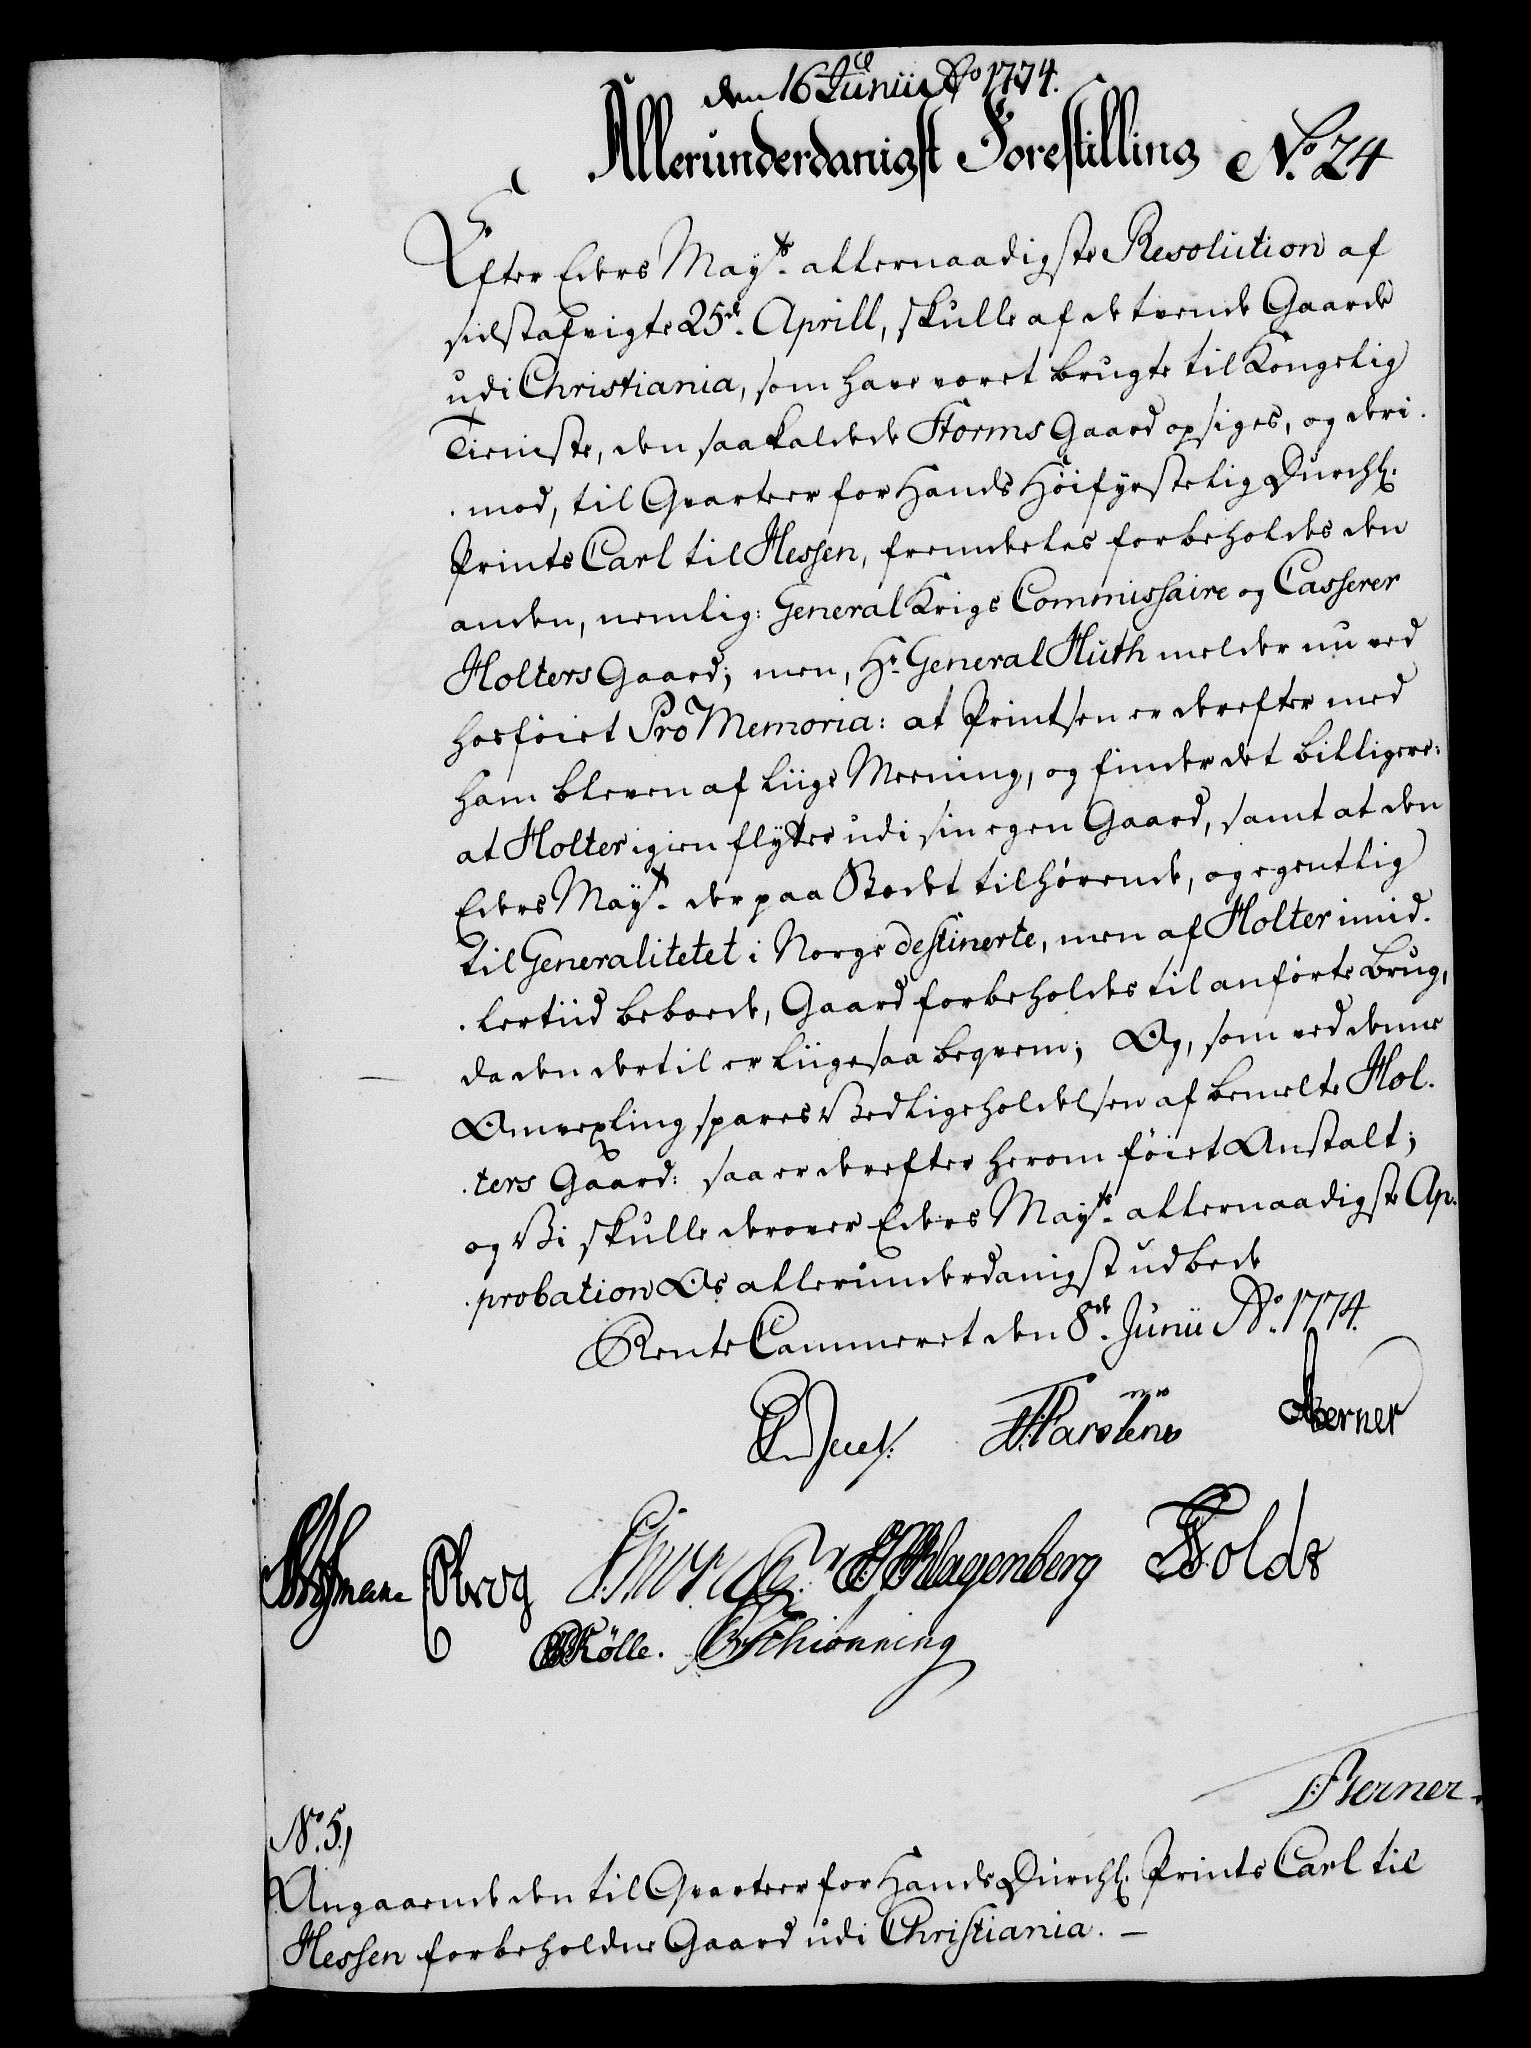 den 16 Junii Ao 1774.
Allerunderdanigst Forestilling No. 24
Efter Eders Mayts. allernaadigste Resolution af
sidstafvigte 25de. Aprill, skulle af de tvende Gaarde
udi Christiania, som have været brugte til Kongelig
Tieniste, den saakaldede Storms Gaard opsiges, og deri-
-mod, til Qvarteer for Hands Höifyrstelig Durchl.
Prints Carl til Hessen, fremdeles forbeholdes den
anden, nemlig: General Krigs Commissaire og Casserer
Holters Gaard; men, Hr. General Huth melder nu ved
hosföiet Pro Memoria: at Printsen er derefter med
ham bleven af liige Meening, og finder det billigere:
at Holter igien flytter udi sin egen Gaard, samt at den
Eders Mayt. der paa Stedet tilhørende, og egentlig
til Generalitetet i Norge destinerte, men af Holter imid-
-lertiid beboede, Gaard forbeholdes til anførte Brug,
da den dertil er liigesaa beqvem; Og, som ved denne
Omvexling spares Vedligeholdelsen af bemelte Hol-
-ters Gaard: saa er derefter herom föiet Anstalt;
og Vi skulle derover Eders Mayts. allernaadigste Ap-
-probation Os allerunderdanigst udbede
Rente Cammeret den 8de. Junii Ao. 1774.
Juel. Berner
Klagenberg Holde
Kölle. Schiönning
Berner.
No. 5.)
Angaaende den til Qvarteer for Hands Durchl. Prints Carl til
Hessen forbeholdne Gaard udi Christiania. –